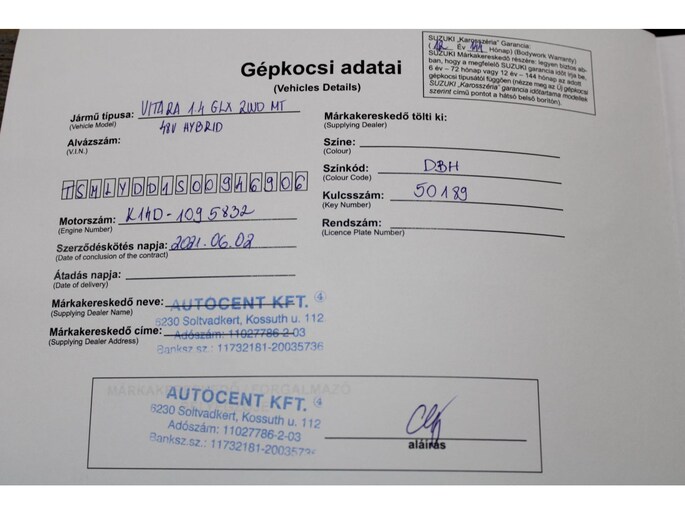 SUZUKI „Karosszéria" Garancia:
( 12 Év 144 Hónap) (Bodywork Warranty)
SUZUKI Márkakereskedő részére: legyen biztos ab-
ban, hogy a megfelelő SUZUKI garancia időt írja be.
6 év – 72 hónap vagy 12 év – 144 hónap az adott
gépkocsi típusától függően (nézze meg az Új gépkocsi
SUZUKI „Karosszéria" garancia időtartama modellek
szerint című pontot a hátsó belső borítón).
Gépkocsi adatai
(Vehicles Details)
Jármű típusa: VITARA 1.4 GLX 2WD MT
(Vehicle Model) 48V HYBRID
Alvázszám:
(V.I.N.)
TSMLYDD1S00946906
Motorszám: K14D-1095832
(Engine Number)
Szerződéskötés napja: 2021.06.02
(Date of conclusion of the contract)
Átadás napja:
(Date of delivery)
Márkakereskedő neve: AUTOCENT KFT. 4
(Supplying Dealer Name) 6230 Soltvadkert, Kossuth u. 112
Márkakereskedő címe: Adószám: 11027786-2-03
(Supplying Dealer Address) Banksz.sz.: 11732181-20035736
Márkakereskedő tölti ki:
(Supplying Dealer)
Színe:
(Colour)
Színkód: DBH
(Colour Code)
Kulcsszám: 50189
(Key Number)
Rendszám:
(Licence Plate Number)
MÁRKAKERESKEDŐ / FORGALMAZÓ
AUTOCENT KFT. 4
6230 Soltvadkert, Kossuth u. 112
Adószám: 11027786-2-03
Banksz.sz.: 11732181-20035736
aláírás